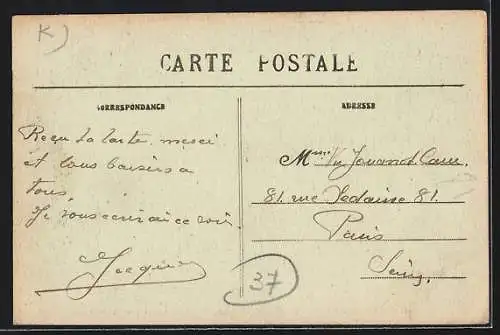 K)
CARTE POSTALE
CORRESPONDANCE
ADRESSE
Reçu ta carte, merci
et bons baisers a
tous
Je vous ecrirai ce soir.
Jacques
Mme Vve
81. rue Sedaine 81.
Paris
Seine,
37